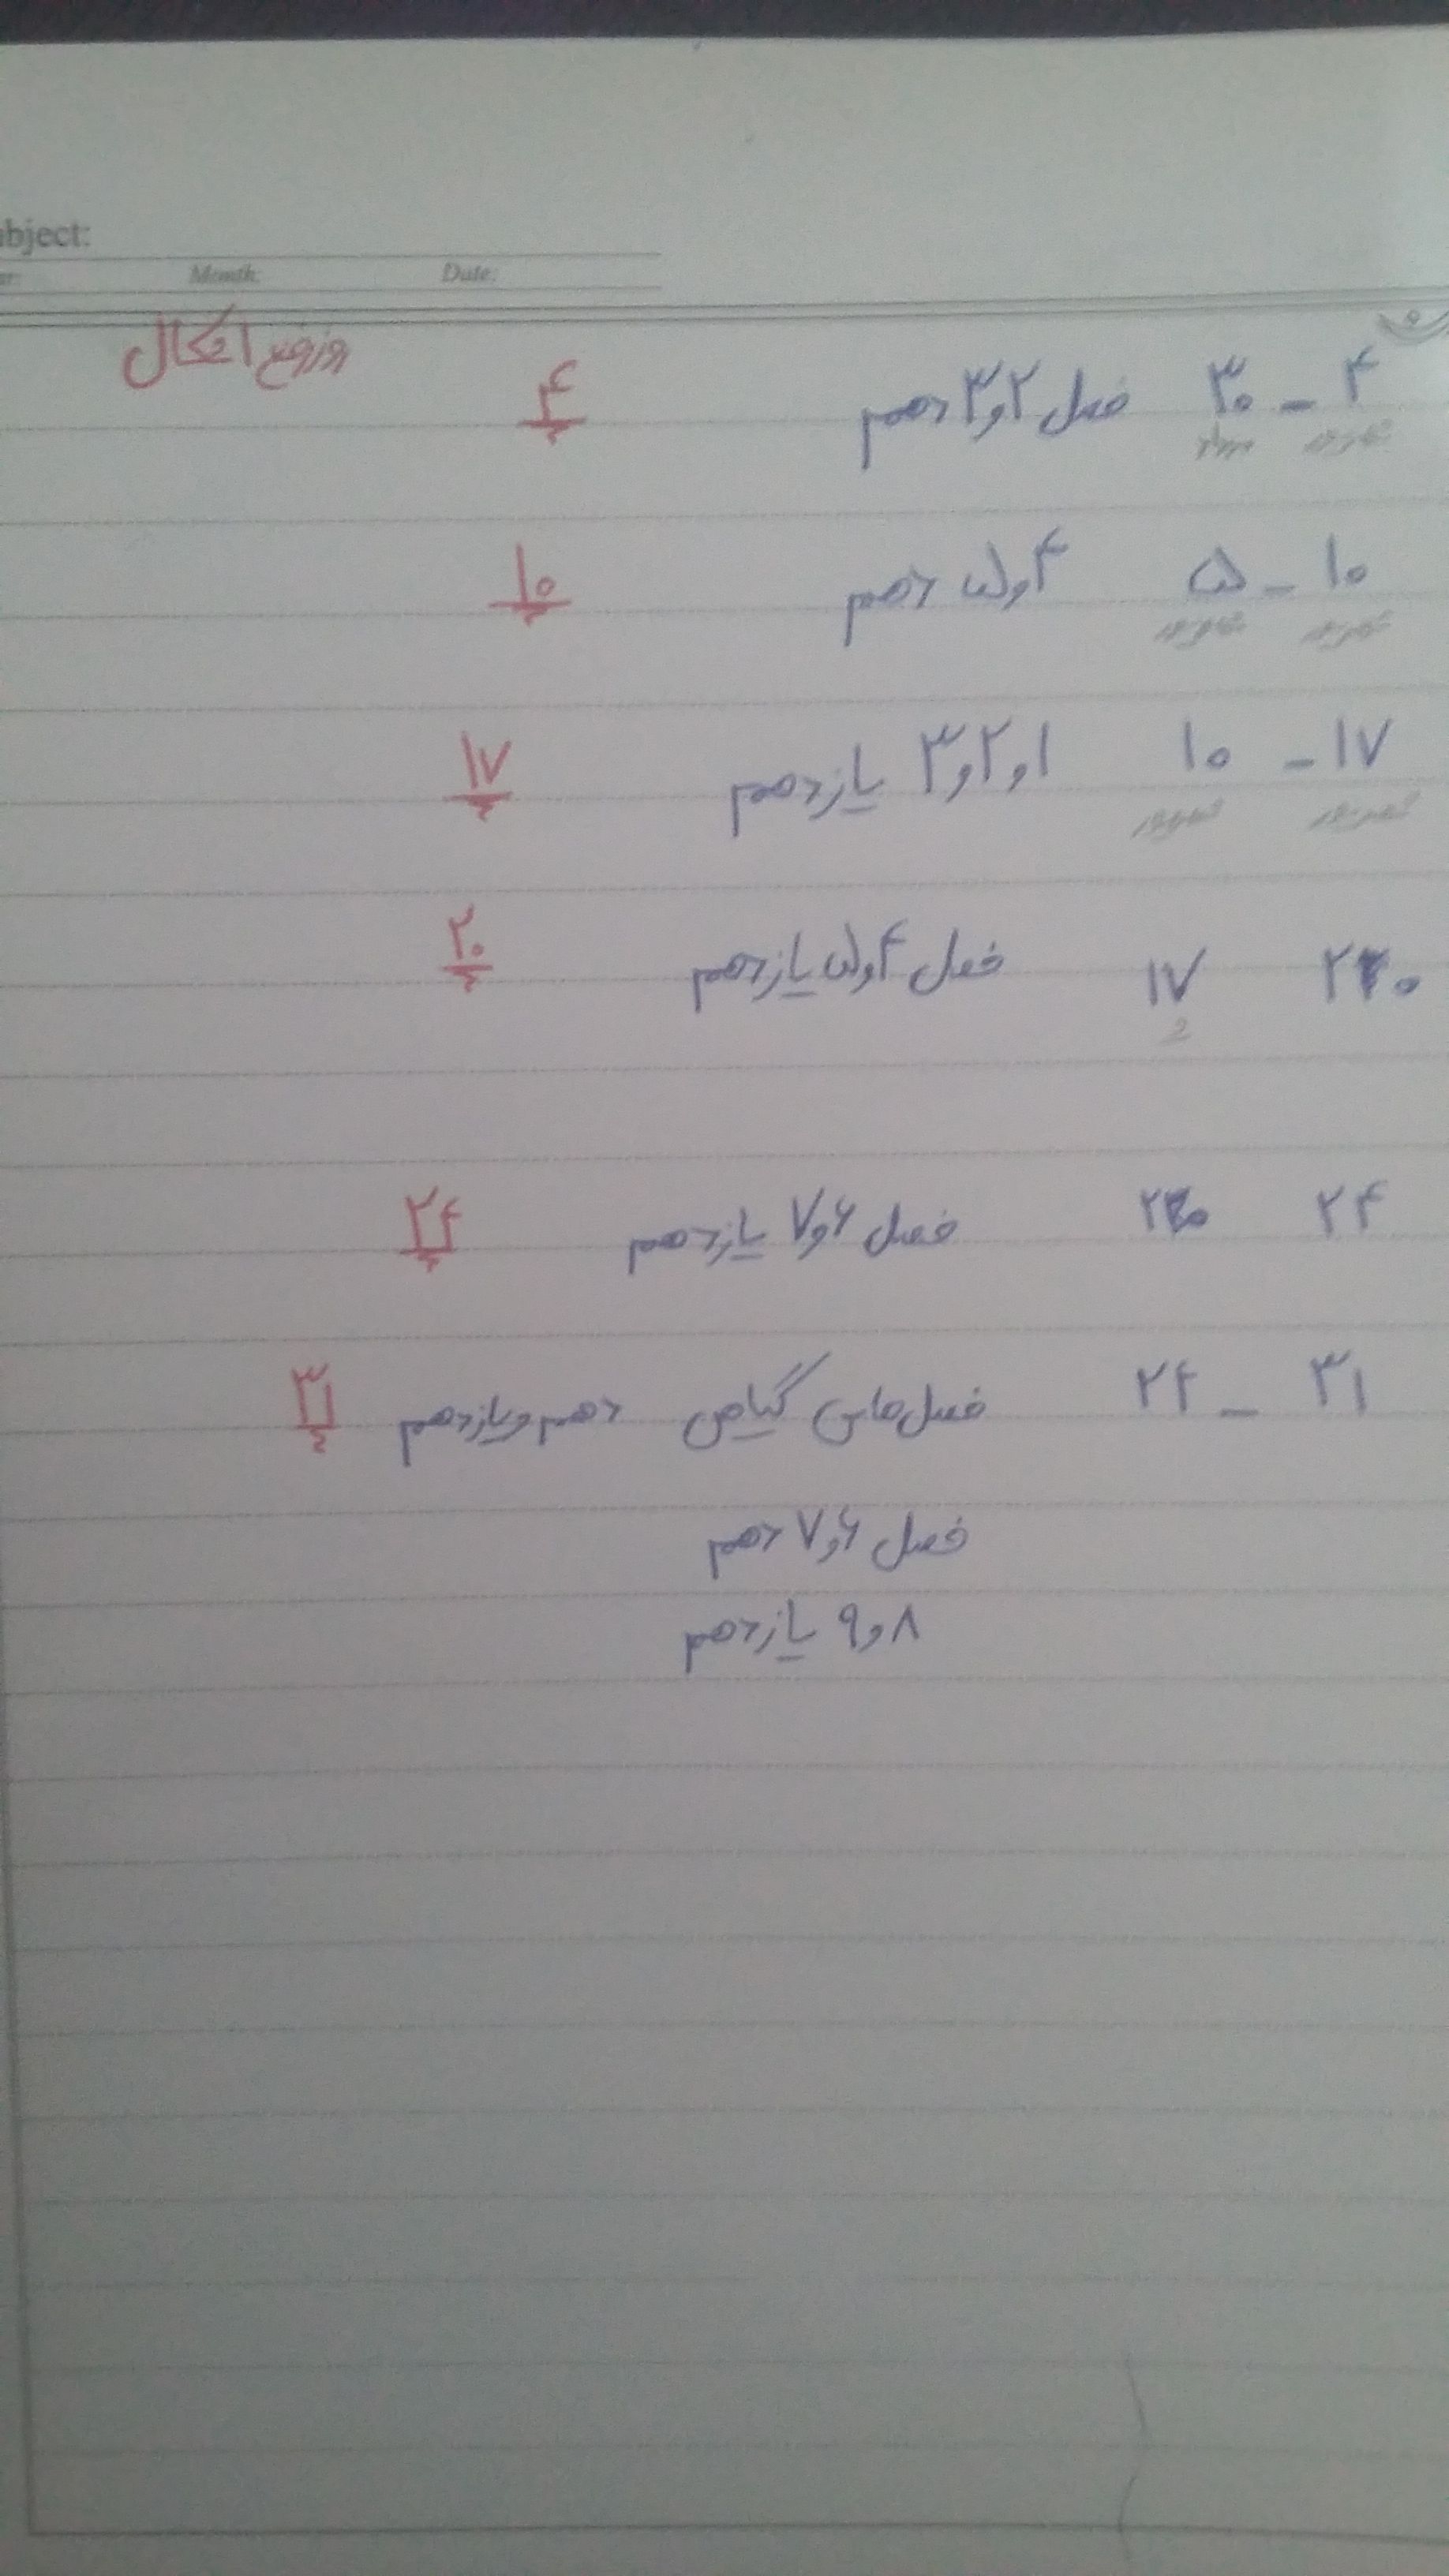 Subject:
Month: Date:
روز رفع اشکال
۴ - ۳۰ فصل ۲ و ۳ دهم ۴
شهریور مرداد
۱۰ - ۵ ۴ و ۵ دهم ۱۰
شهریور شهریور
۱۷ - ۱۰ ۱ و ۲ و ۳ یازدهم ۱۷
شهریور شهریور
۲۰ ۱۷ فصل ۴ و ۵ یازدهم ۲۰
۲۴ ۲۰ فصل ۶ و ۷ یازدهم ۲۴
۳۱ - ۲۴ فصل‌های گیاهی دهم و یازدهم ۳۱
فصل ۶ و ۷ دهم
۸ و ۹ یازدهم